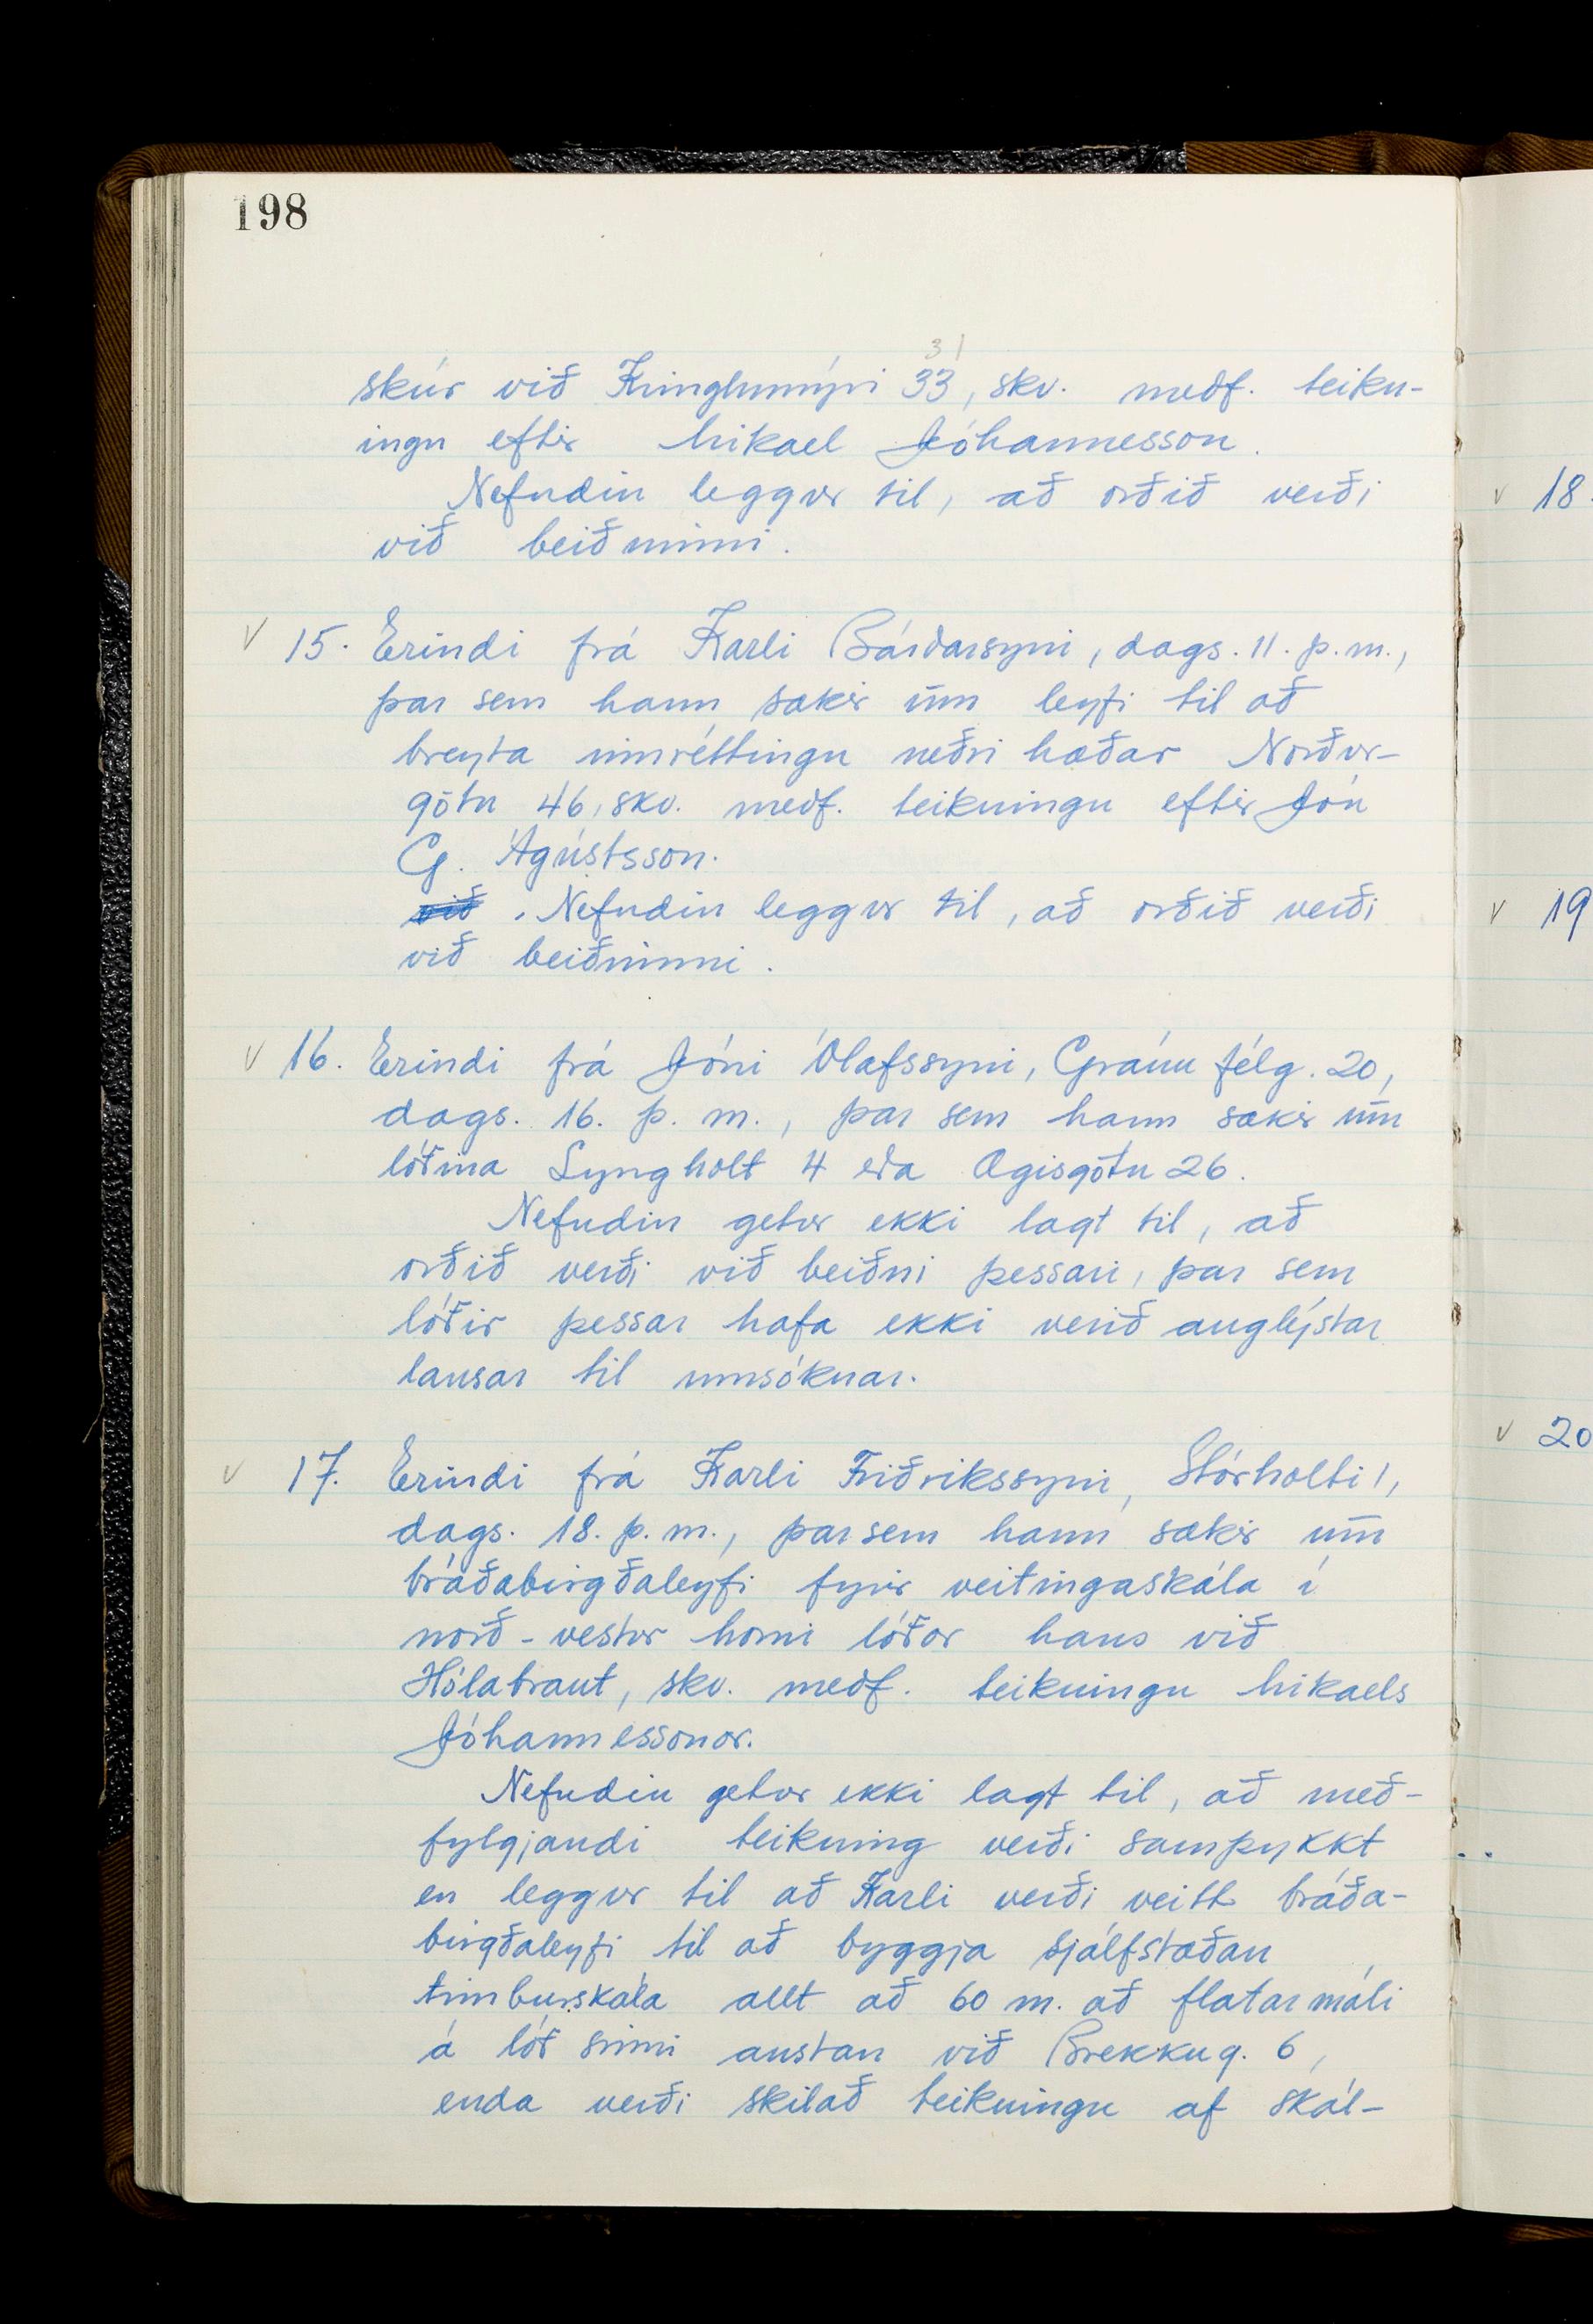 198
31
skúr við Kringlumýri 33, skv. meðf. teikn-
ingu eftir Mikael Jóhannesson.
Nefndin leggur til, að orðið verði
við beiðninni.
v 15. Erindi frá Karli Bárðarsyni, dags. 11. þ.m.,
þar sem hann sækir um leyfi til að
breyta innréttingu neðri hæðar Norður-
götu 46, skv. meðf. teikningu eftir Jón
G. Ágústsson.
við. Nefndin leggur til, að orðið verði
við beiðninni.
v 16. Erindi frá Jóni Ólafssyni, Gránufélg. 20,
dags. 16. þ. m., þar sem hann sækir um
lóðina Lyngholt 4 eða Ægisgötu 26.
Nefndin getur ekki lagt til, að
orðið verði við beiðni þessari, þar sem
lóðir þessar hafa ekki verið auglýstar
lausar til umsóknar.
v 17. Erindi frá Karli Friðrikssyni, Stórholti 1,
dags. 18. þ.m., þar sem hann sækir um
bráðabirgðaleyfi fyrir veitingaskála í
norð-vestur horni lóðar hans við
Hólabraut, skv. meðf. teikningu Mikaels
Jóhannessonar.
Nefndin getur ekki lagt til, að með-
fylgjandi teikning verði samþykkt
en leggur til að Karli verði veitt bráða-
birgðaleyfi til að byggja sjálfstæðan
timburskála allt að 60 m. að flatarmáli
á lóð sinni austan við Brekkug. 6,
enda verði skilað teikningu af skál-
v 18
v 19
v 20